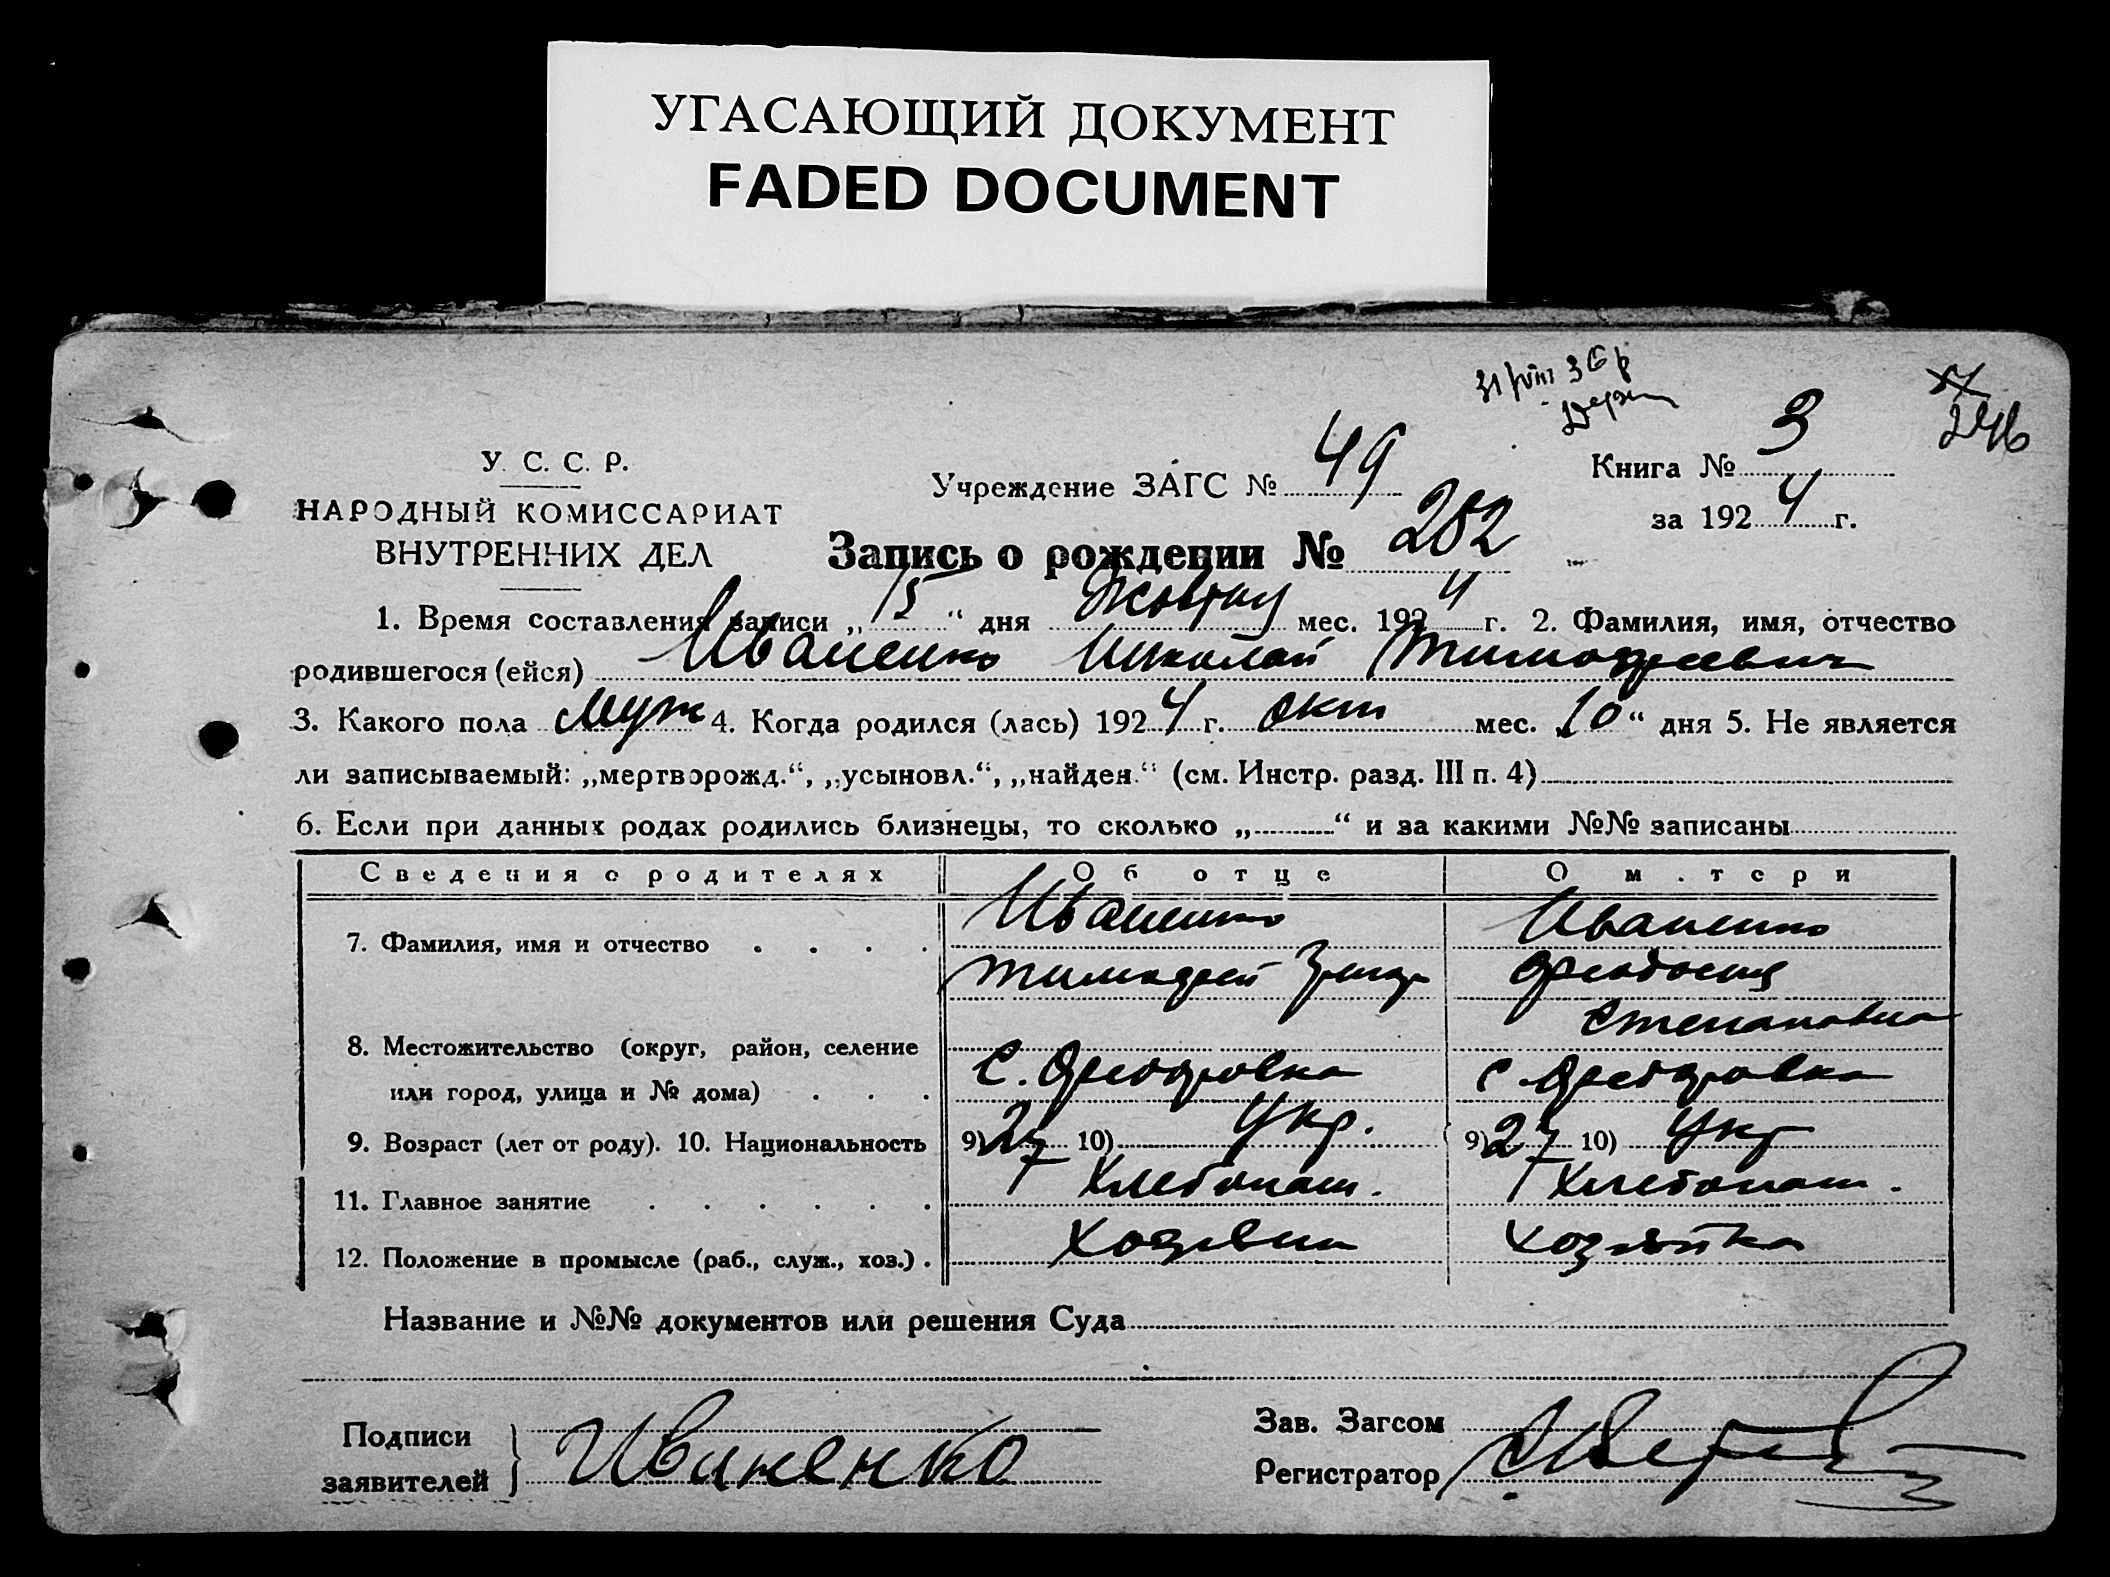 УГАСАЮЩИЙ ДОКУМЕНТ
FADED DOCUMENT
246
У. С. С. Р.
НАРОДНЫЙ КОМИССАРИАТ
ВНУТРЕННИХ ДЕЛ
Учреждение ЗАГС № 49
Книга № 3
за 1924 г.
Запись о рождении № 282
1. Время составления записи „15“ дня Жовтня мес. 1924 г. 2. Фамилия, имя, отчество
родившегося (ейся) Иваненко Николай Тимофеевич
3. Какого пола муж 4. Когда родился (лась) 1924 г. окт мес. „10“ дня 5. Не является
ли записываемый: „мертворожд.“, „усыновл.“, „найден.“ (см. Инстр. разд. III п. 4)
6. Если при данных родах родились близнецы, то сколько „ “ и за какими №№ записаны
Сведения о родителях Об отце О м.тери
7. Фамилия, имя и отчество Иваненко Иваненко
Тимофей Феодосия
Степановна
8. Местожительство (округ, район, селение
или город, улица и № дома) С. Федоровка с. Федоровка
9. Возраст (лет от роду). 10. Национальность 9) 27 10) Укр. 9) 27 10) Укр
11. Главное занятие Хлебопаш. Хлебопаш.
12. Положение в промысле (раб., служ., хоз.) Хозяин хозяйка
Название и №№ документов или решения Суда
Подписи
заявителей
Иваненко
Зав. Загсом
Регистратор